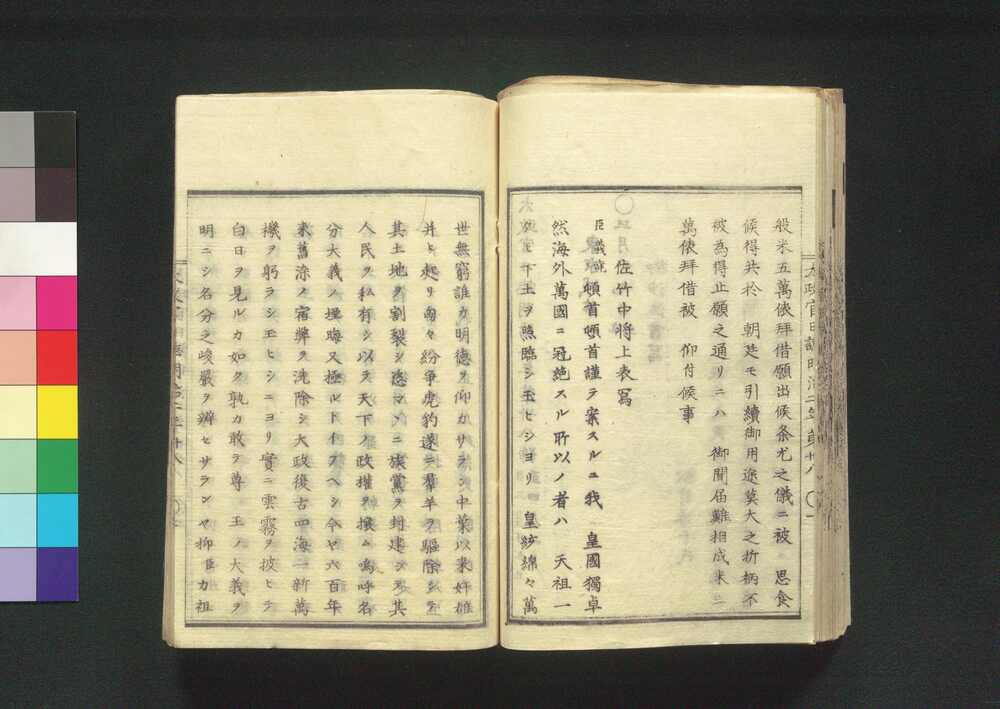 般米五萬俵拜借願出候条尤之儀ニ被　思食
候得共於　朝廷モ引續御用途莫大之折柄不
被為得止願之通リニハ　御聞届難相成米
萬俵拜借被　仰付候事
佐竹中將上表寫
臣義堯頓首頓首謹テ案スルニ我　皇國獨卓
然海外萬國ニ冠絶スル所以ノ者ハ　天祖一
タヒ下土ヲ照臨シ玉ヒシヨリ　皇紗綿々萬
世無窮誰カ明德ヲ仰カサラン中葉以来奸雄
並ヒ起リ両々紛争虎豹遂ニ羣羊ヲ驅除シテ
其土地ヲ割裂シ恣マヽニ族黨ヲ封建シテ其
人民ヲ私有シ以テ天下ノ政權ヲ攘ム嗚呼名
分大義ノ埋晦又極ルトイフヘシ今ヤ六百年
来舊染ノ宿弊ヲ洗除シ大政復古四海一新萬
機ヲ躬ラシ玉ヒシニヨリ實ニ雲霧ヲ披ヒテ
白日ヲ見ルカ如ク孰カ敢テ尊　王ノ大義ヲ
明ニシ名分之峻嚴ヲ辨セサランヤ抑臣カ祖
太政官日誌明治二年第十八